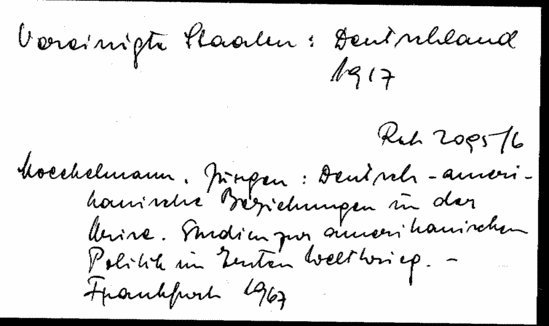 Vereinigte Staaten : Deutschland
1917
Ruh 2095/6
Moeckelmann, Jürgen : Deutsch-ameri-
kanische Beziehungen in der
Krise. Studien zur amerikanischen
Politik im Ersten Weltkrieg. –
Frankfurt 1967